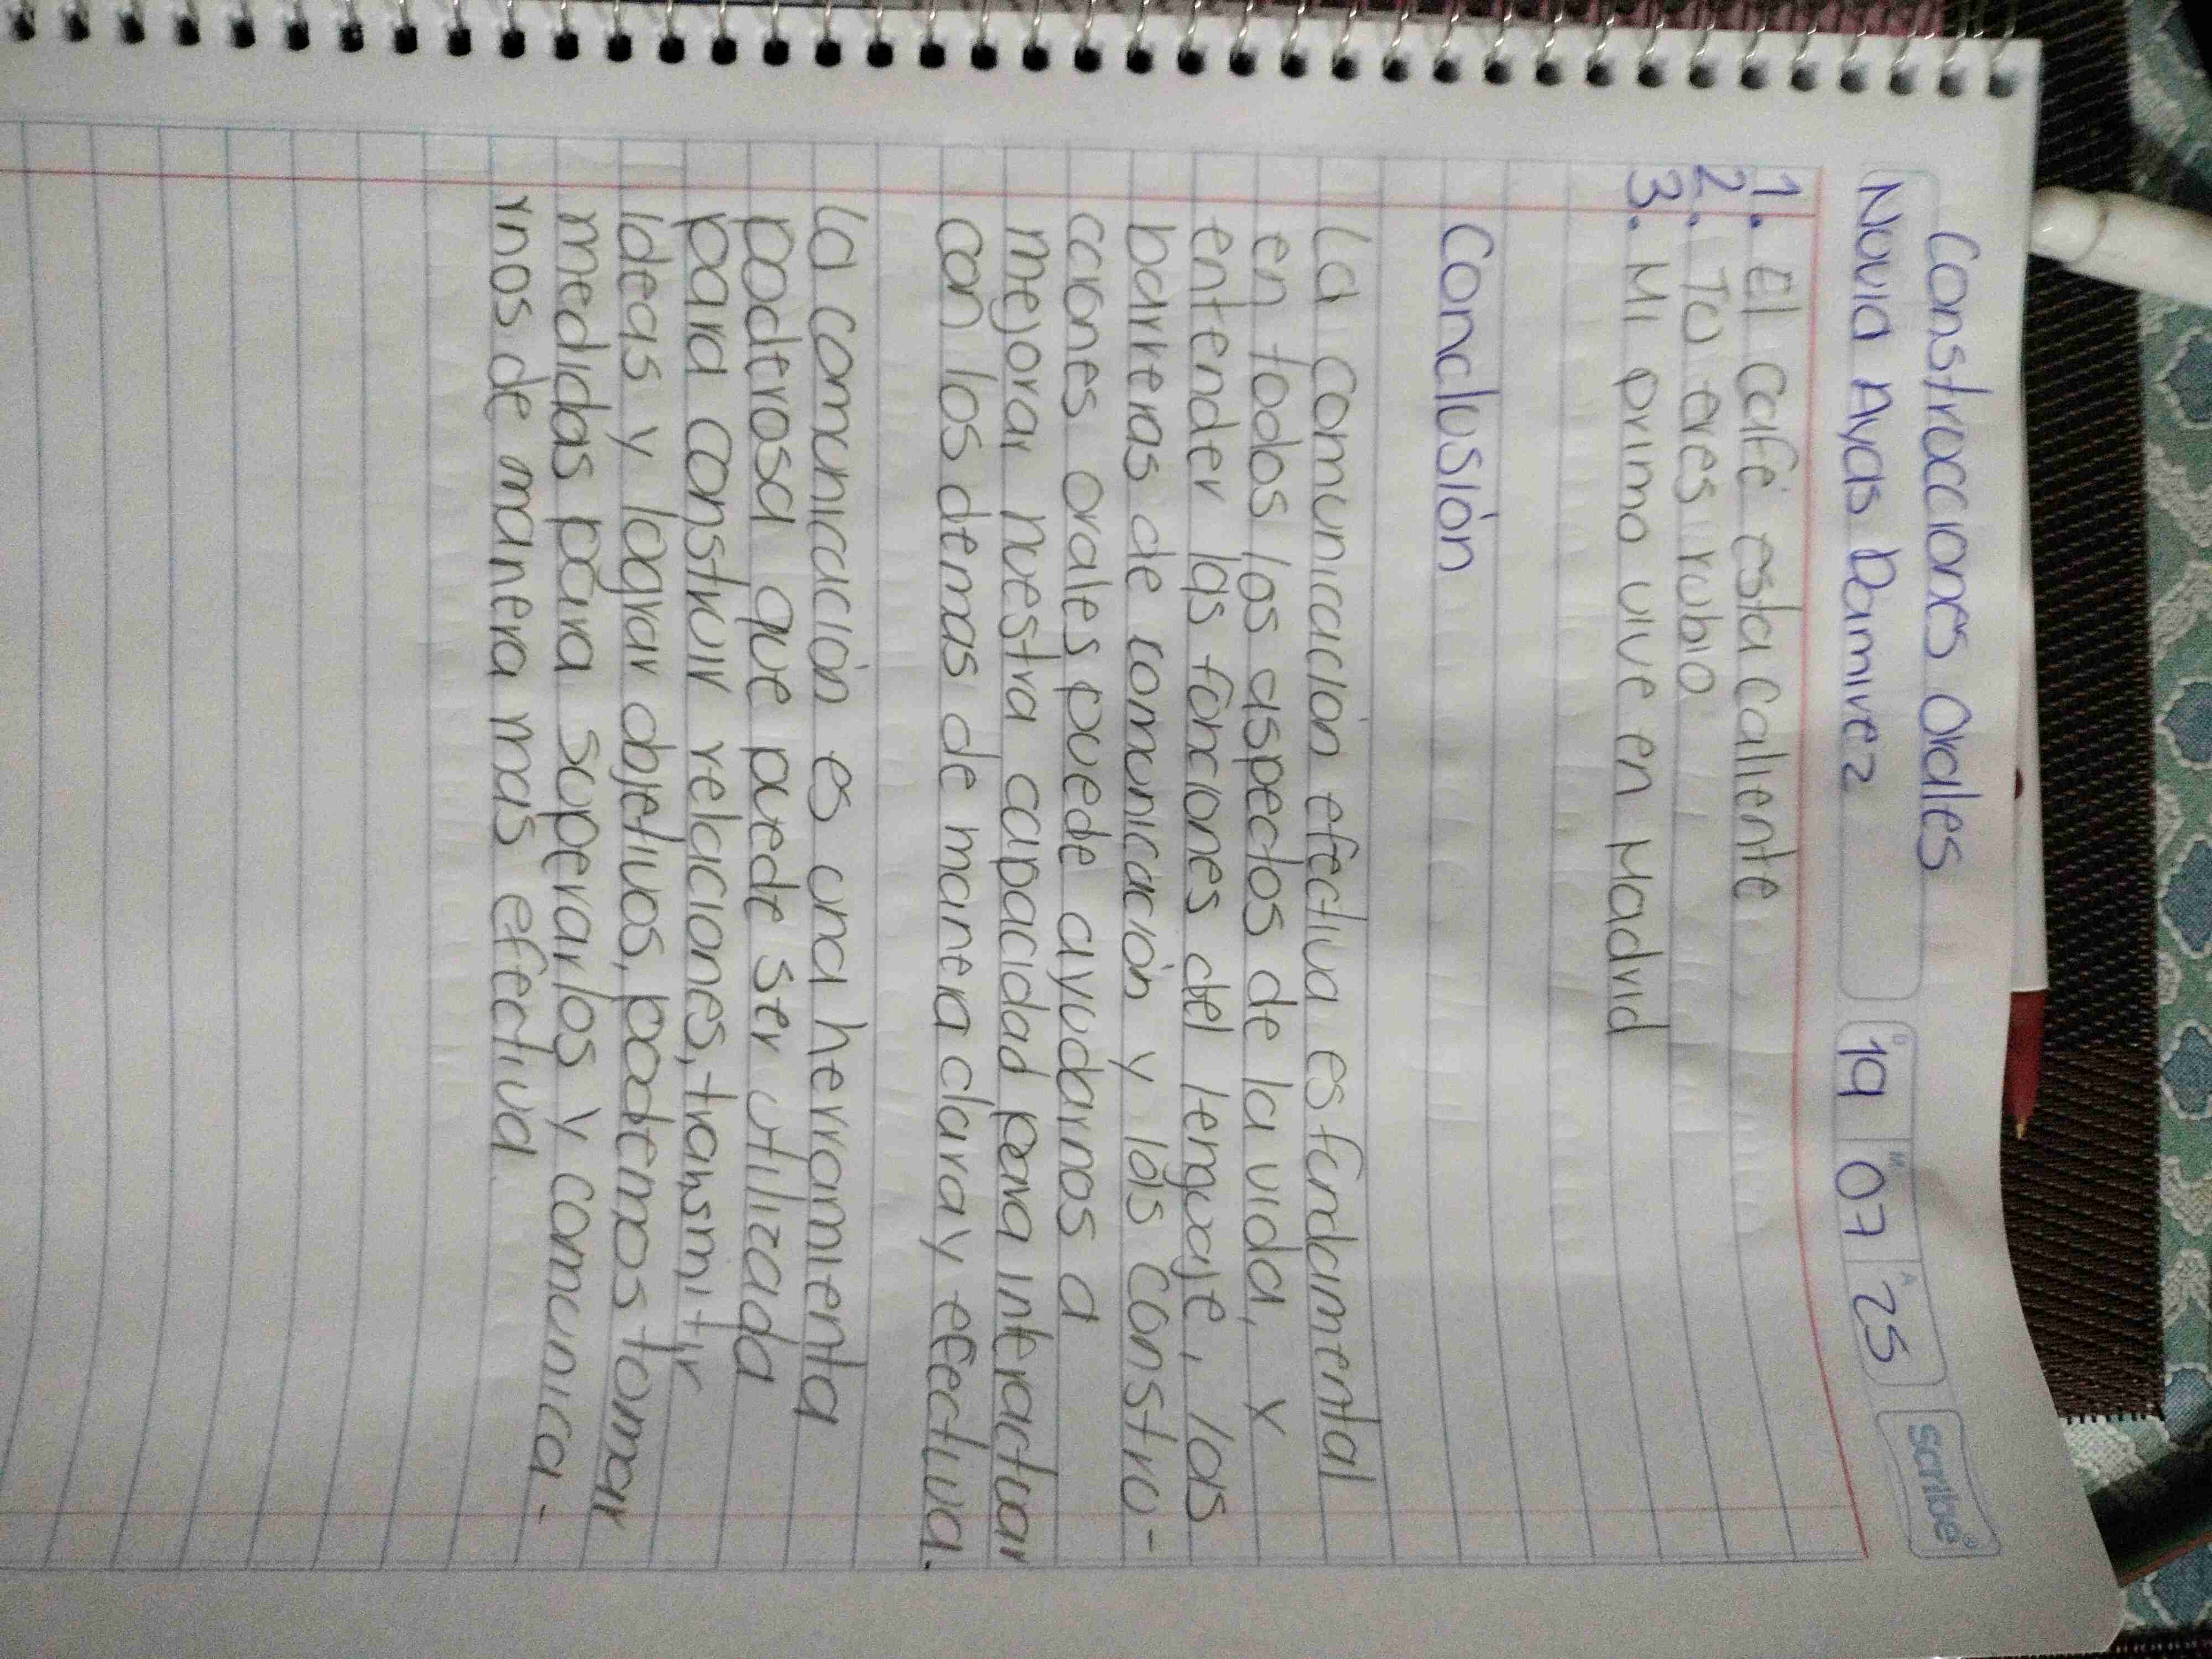 Construcciones Orales
Nauia Ayas Ramirez
D 19 M 07 A 25
scribe
1. El Café esta Caliente
2. Tu eres rubio
3. Mi primo vive en Madrid
Conclusión
La comunicación efectiva es fundamental
en todos los aspectos de la vida, y
entender las funciones del lenguaje, las
barreras de comunicación y las Constru-
cciones orales puede ayudarnos a
mejorar nuestra capacidad para interactuar
con los demas de manera clara y efectiva.
La comunicación es una herramienta
poderosa que puede ser utilizada
para construir relaciones, transmitir
Ideas y lograr objetivos, podemos tomar
medidas para superarlos y comunica-
rnos de manera mas efectiva.